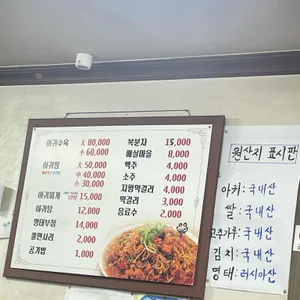 아귀수육 大 80,000
小 60,000
아귀찜 大 50,000
中 40,000
小 30,000
아귀찌개 15,000
아귀탕 12,000
명태부침 14,000
쫄면사리 2,000
공기밥 1,000
복분자 15,000
매실마을 8,000
맥주 4,000
소주 4,000
지평막걸리 4,000
막걸리 3,000
음료수 2,000
원산지 표시판
아귀: 국내산
쌀: 국내산
고추가루: 국내산
김치: 국내산
명태: 러시아산